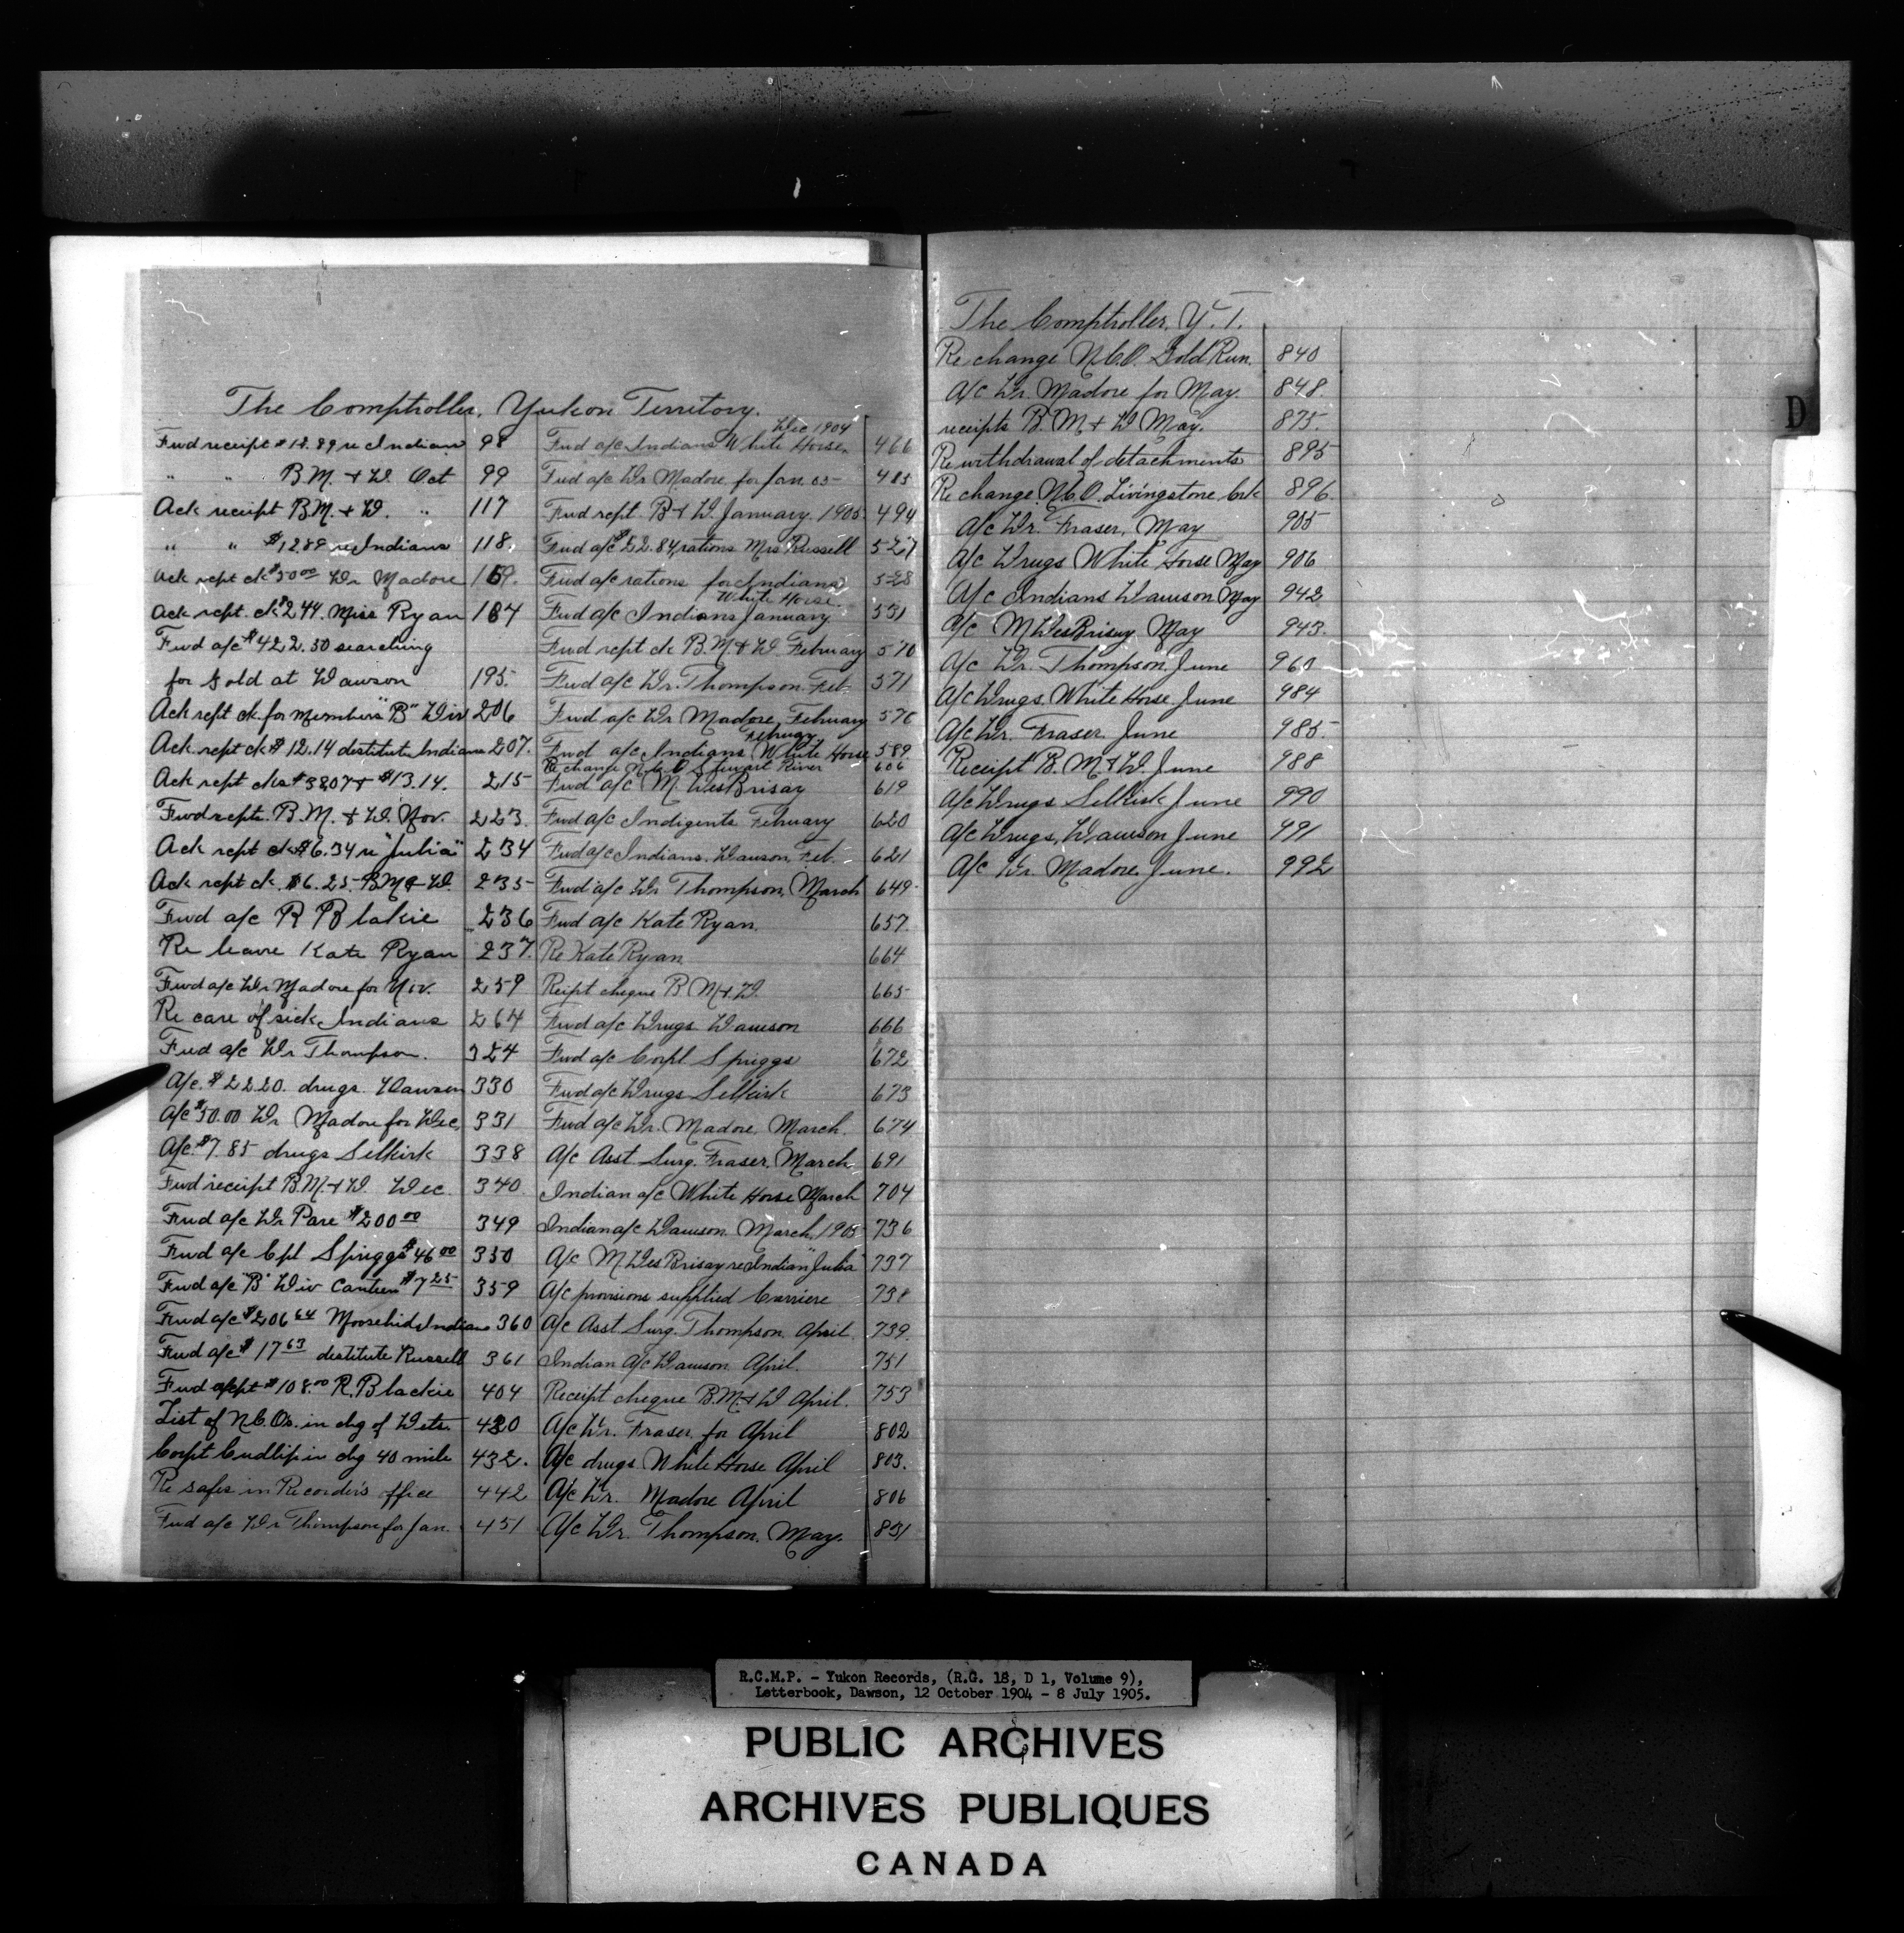 The Comptroller, Yukon Territory.
Fwd receipt $12.89 re Indian 98
" " B.M. & D. Oct 99
Ack receipt B.M. & D. " 117
" " $12.89 re Indians 118.
Ack rept ck $50.00 Dr Madore 169.
Ack rept. ck $244. Miss Ryan 187
Fwd a/c $422.50 searching
for gold at Dawson 195.
Ack rept ck. for members "B" Div 206
Ack. rept ck $12.14 destitute Indians 207.
Ack rept cks $3807 & $13.14. 215
Fwd repts. B.M. & D. Nov. 223.
Ack rept ck $6.34 re "Julia" 234
Ack rept ck. $6.25 B M & D. 235
Fwd a/c R Blakie 236
Re leave Kate Ryan 237.
Fwd a/c Dr Madore for Nov. 259
Re care of sick Indians 264
Fwd a/c Dr Thompson. 324
A/c. $22.20. drugs. Dawson 330
A/c $50.00 Dr Madore for Dec, 331
A/c. $7.85 drugs Selkirk 338
Fwd receipt B.M. & D. Dec. 340.
Fwd a/c Dr Pare $200.00 349
Fwd a/c Cpl Spriggs $46.00 350
Fwd a/c "B" Div Canteen $7.25 359
Fwd a/c $206.64 Moosehide Indians 360
Fwd a/c $17.63 destitute Russell 361
Fwd rept $108.00 R. Blackie 404
List of N.C.O's. in chg of Dets. 420
Corpt Cudlip in chg 40 mile 432.
Re safes in Recorder's office 442
Fwd a/c Dr Thompson for Jan. 451
Dec 1904
Fwd a/c Indians White Horse, 466
Fwd a/c Dr Madore for Jan. 05 485
Fwd rept. B & D. January. 1905. 494
Fwd a/c $52.84, rations Mrs Russell 527
Fwd a/c rations for Indians 528
White Horse.
Fwd a/c Indians January 531
Fwd rept ck B.M. & D. February 570
Fwd a/c Dr. Thompson. Feb. 571
Fwd. a/c Dr Madore, February 576
February
Fwd a/c Indians White Horse 589.
Re change N.C.O. Stewart River 606
Fwd a/c M. DesBrisay 619
Fwd a/c Indigents February 620
Fwd a/c Indians. Dawson. Feb. 621
Fwd a/c Dr Thompson, March 649
Fwd a/c Kate Ryan. 657.
Re Kate Ryan 664
Reipt cheque B M & D. 665
Fwd a/c Drugs Dawson 666
Fwd a/c Corpl. Spriggs 672
Fwd a/c Drugs Selkirk 673
Fwd a/c Dr. Madore. March. 674
A/c Asst. Surg. Fraser, March 691
Indian a/c White Horse March 704
Indian a/c Dawson. March, 1905 736
A/c M DesBrisay re Indian "Julia" 737
A/c provisions supplied Carriere 738
A/c Asst. Surg. Thompson. April. 739.
Indian a/c Dawson April. 751
Receipt cheque B.M. & D April. 753
A/c Dr. Fraser for April 802
A/c drugs White Horse April 803.
A/c Dr. Madore April 806
A/c Dr. Thompson. May. 831
The Comptroller, Y.T.
Re change N.C.O. Gold Run. 840
A/c Dr. Madore for May. 848.
receipts B. M & D May. 875.
Re withdrawal of detachments 895
Re change N.C.O. Livingstone Crk 896.
A/c Dr. Fraser, May 905
A/c Drugs White Horse May 906
A/c Indians Dawson May 942
A/c M DesBrisay May 943.
A/c Dr. Thompson. June 960
A/c Drugs White Horse June 984
A/c Dr. Fraser June 985.
Receipt B. M & D. June 988
A/c Drugs Selkirk June 990
A/c Drugs, Dawson June 991
A/c Dr Madore June. 992
D
R.C.M.P. - Yukon Records, (R.G. 18, D 1, Volume 9),
Letterbook, Dawson, 12 October 1904 - 8 July 1905.
PUBLIC ARCHIVES
ARCHIVES PUBLIQUES
CANADA